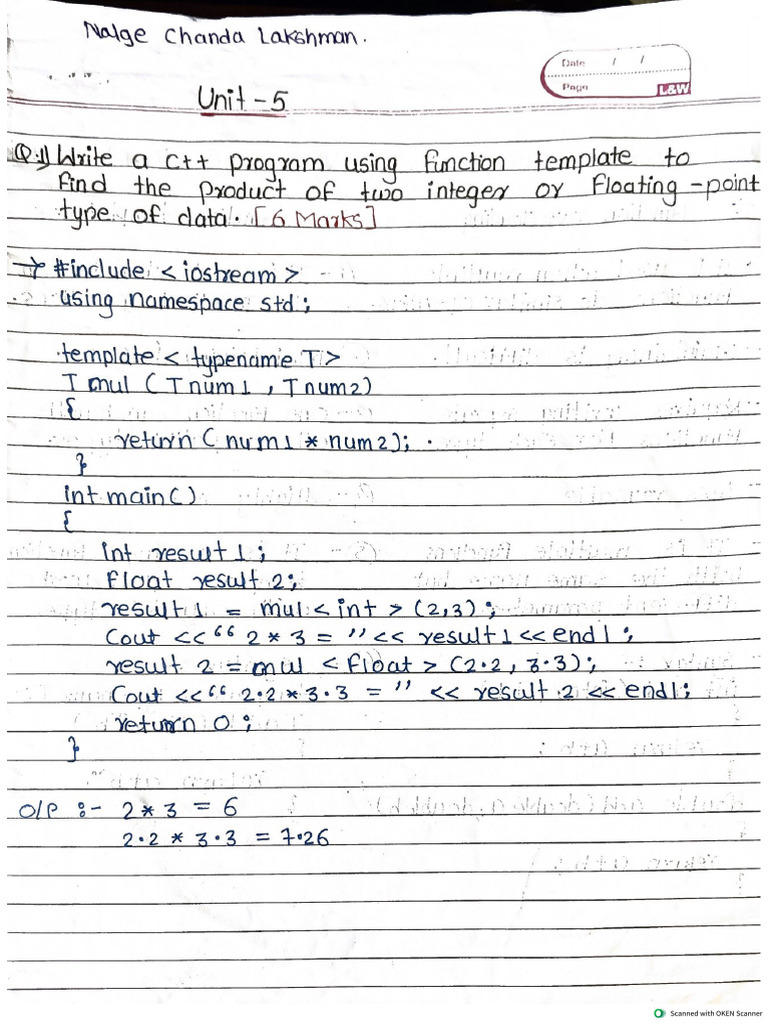 Nalge Chanda Lakshman.
Date / /
Page
L&W
Unit - 5
Q.1) Write a C++ program using function template to
find the product of two integer or floating-point
type of data. [6 Marks]
→ #include <iostream>
using namespace std;
template < typename T>
T mul (T num1 , T num2)
{
return ( num1 * num2);
}
int main()
{
int result 1 ;
float result 2;
result 1 = mul < int > (2,3) ;
Cout <<“ 2 * 3 = ” << result 1 << endl ;
result 2 = mul < float > (2.2 , 3.3);
Cout <<“ 2.2 * 3.3 = ” << result 2 << endl;
return 0 ;
}
O/P :- 2 * 3 = 6
2.2 * 3.3 = 7.26
Scanned with OKEN Scanner